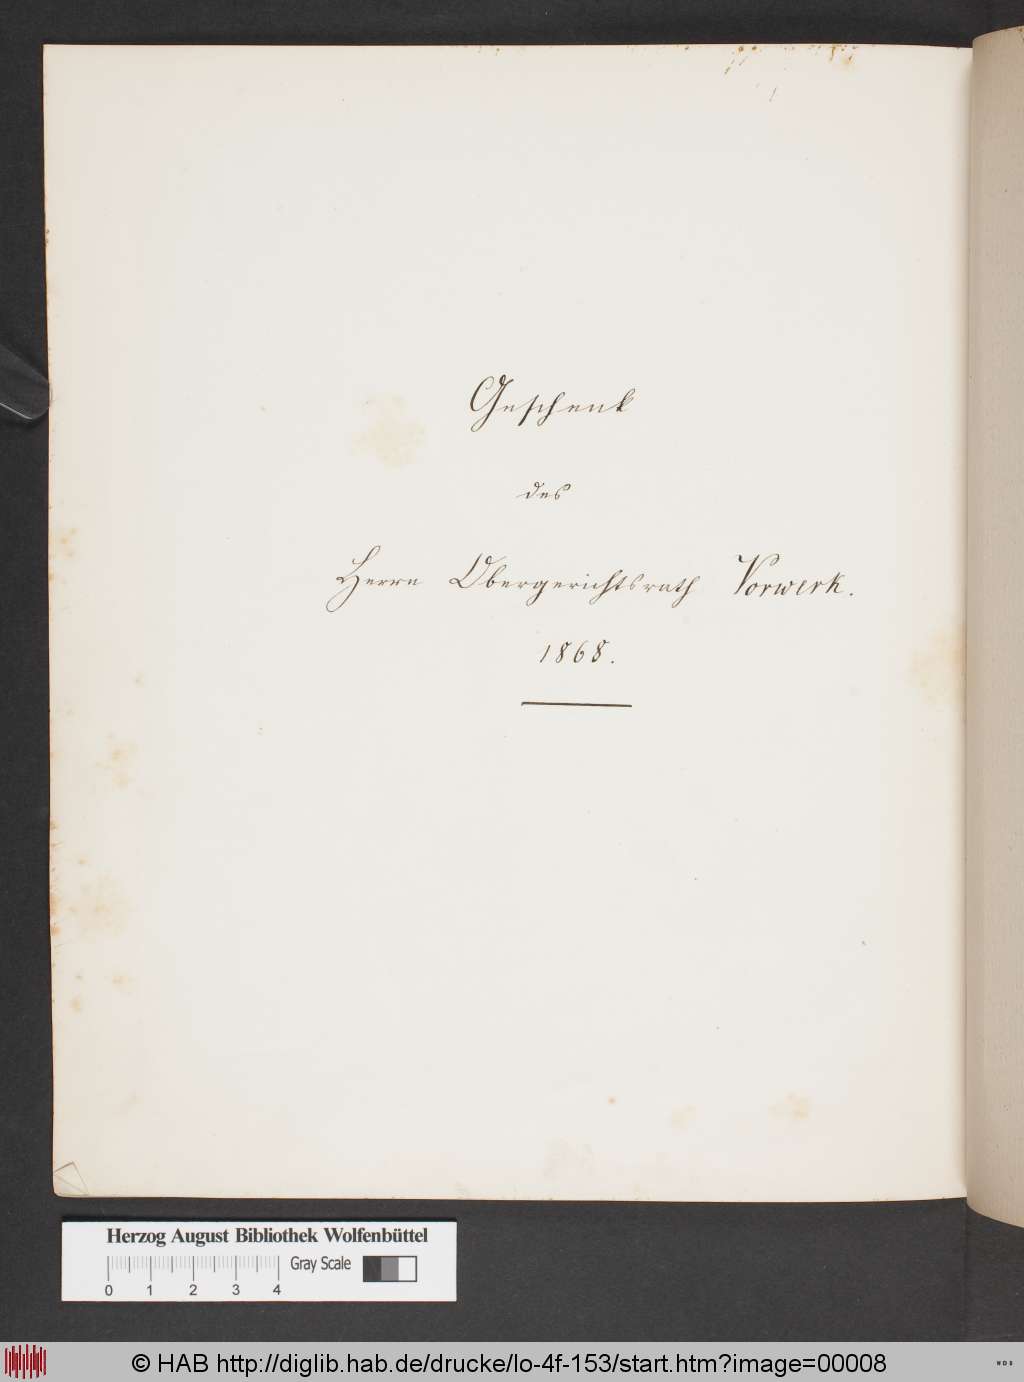 Geschenk
des
Herrn Obergerichtsrath Vorwerk.
1868.
Herzog August Bibliothek Wolfenbüttel
Gray Scale
0 1 2 3 4
© HAB http://diglib.hab.de/drucke/lo-4f-153/start.htm?image=00008